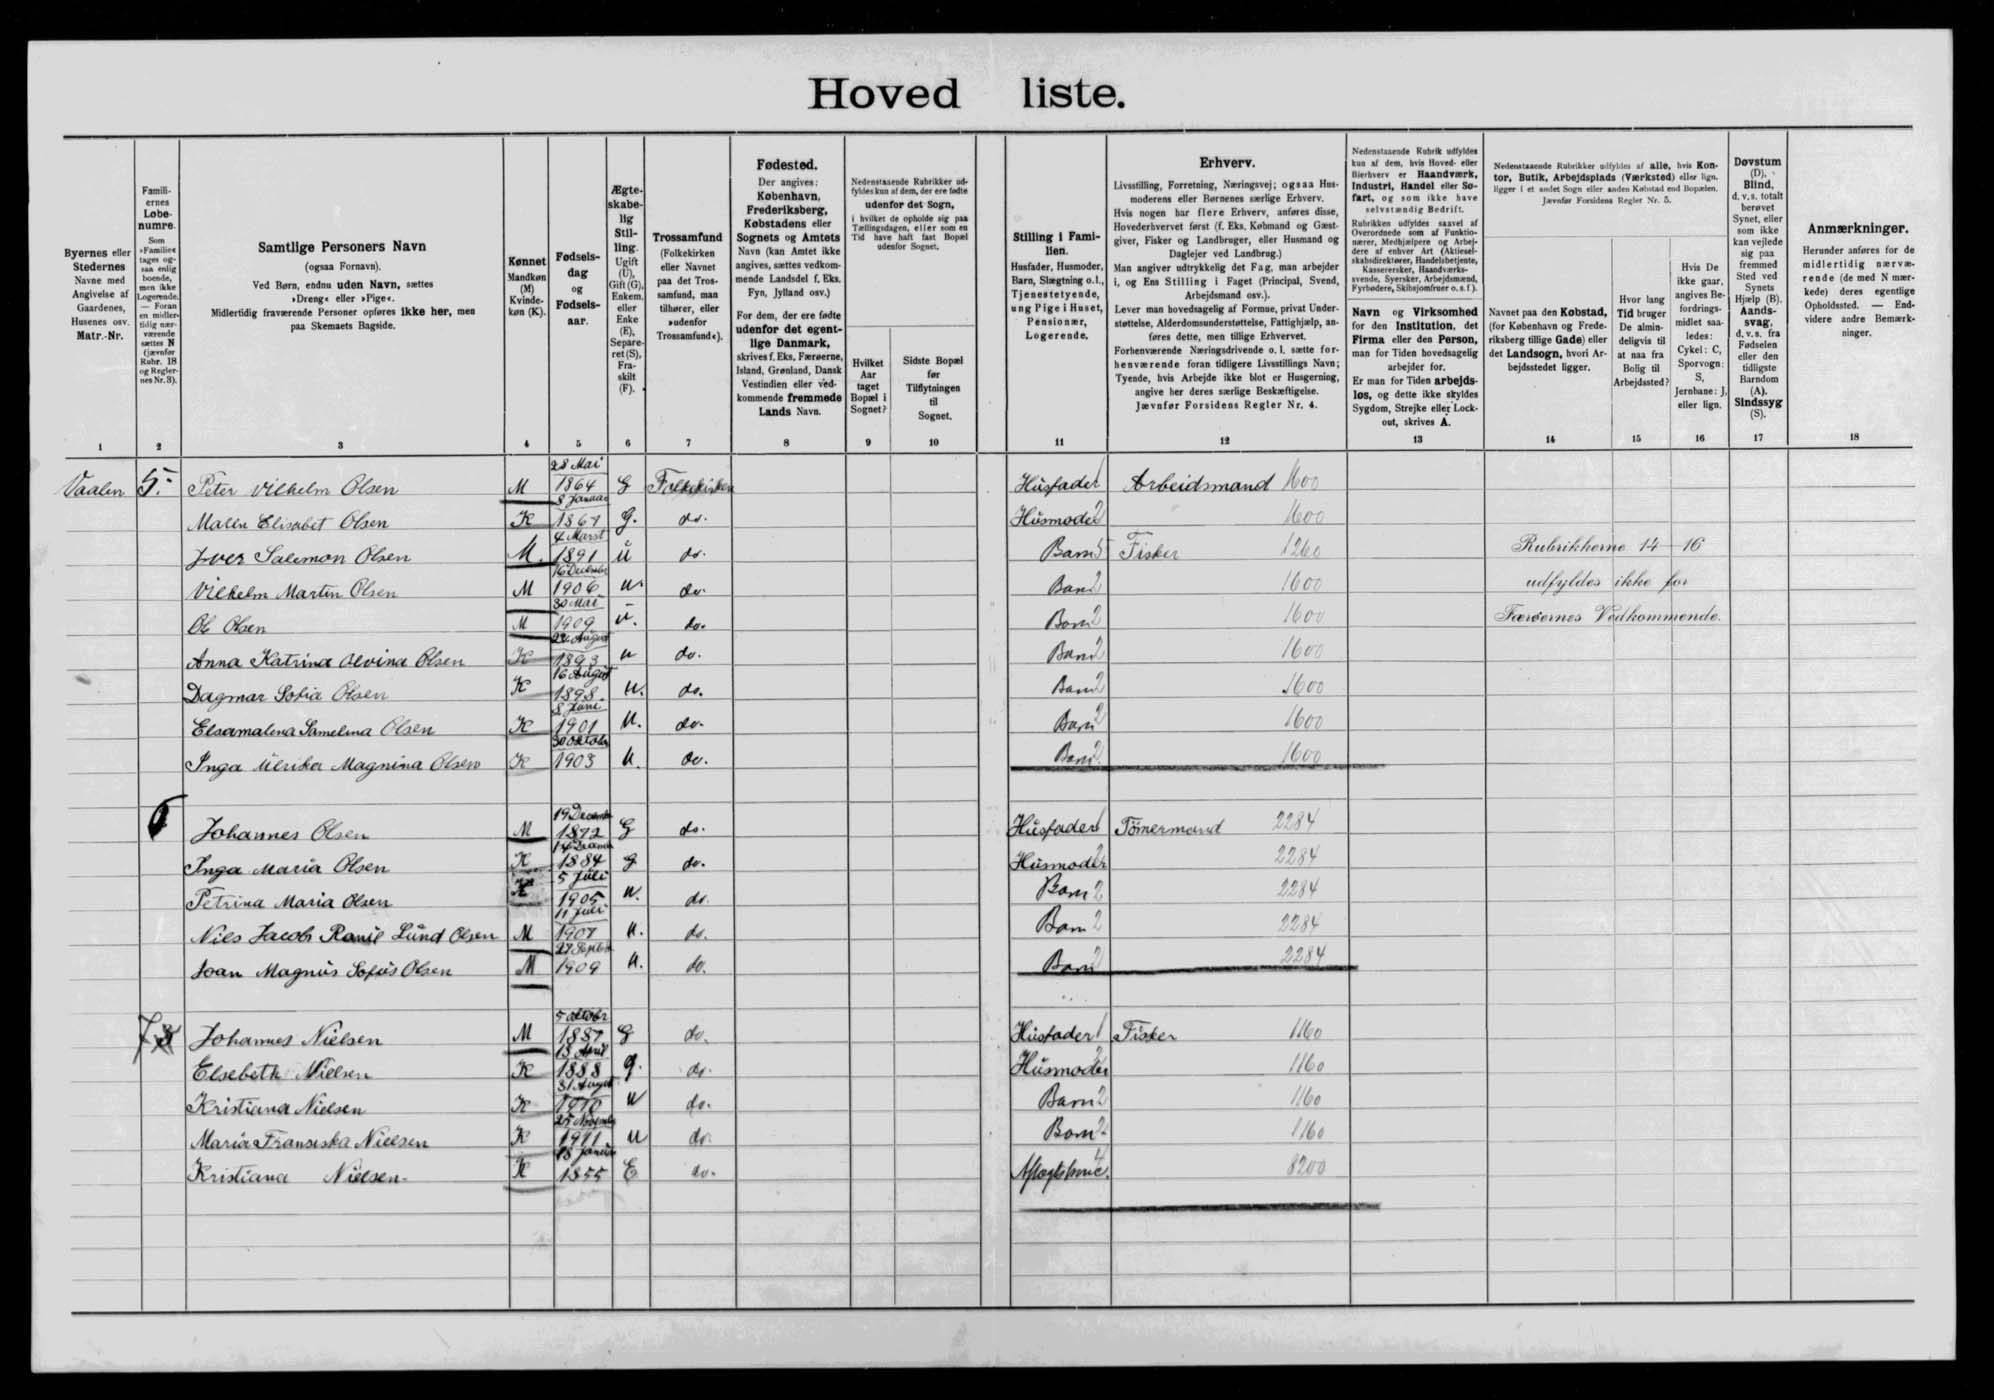 Hoved liste.
Byernes eller Stedernes Navne med Angivelse af Gaardenes, Husenes osv. Matr.-Nr.
Familiernes Løbenumre.
Som »Familie« tages ogsaa enlig boende, men ikke Logerende. — Foran en midlertidig nærværende sættes N (jævnfør Rubr. 18 og Reglernes Nr. 3).
Samtlige Personers Navn
(ogsaa Fornavn).
Ved Børn, endnu uden Navn, sættes
»Dreng« eller »Pige«.
Midlertidig fraværende Personer opføres ikke her, men
paa Skemaets Bagside.
Kønnet
Mandkøn (M) Kvindekøn (K).
Fødselsdag og Fødselsaar.
Ægteskabelig Stilling.
Ugift (U), Gift (G), Enkem. eller Enke (E), Separeret (S), Fraskilt (F).
Trossamfund
(Folkekirken eller Navnet paa det Trossamfund, man tilhører, eller »udenfor Trossamfund«).
Fødested.
Der angives:
København, Frederiksberg, Købstadens eller Sognets og Amtets Navn (kan Amtet ikke angives, sættes vedkommende Landsdel f. Eks. Fyn, Jylland osv.)
For dem, der ere fødte udenfor det egentlige Danmark, skrives f. Eks. Færøerne, Island, Grønland, Dansk Vestindien eller vedkommende fremmede Lands Navn.
Nedenstaaende Rubrikker udfyldes kun af dem, der ere fødte udenfor det Sogn, i hvilket de opholde sig paa Tællingsdagen, eller som en Tid have haft fast Bopæl udenfor Sognet.
Hvilket Aar taget Bopæl i Sognet?
Sidste Bopæl før Tilflytningen til Sognet.
Stilling i Familien.
Husfader, Husmoder, Barn, Slægtning o.l., Tjenestetyende, ung Pige i Huset, Pensionær, Logerende.
Erhverv.
Livsstilling, Forretning, Næringsvej; ogsaa Husmoderens eller Børnenes særlige Erhverv.
Hvis nogen har flere Erhverv, anføres disse, Hovederhvervet først (f. Eks. Købmand og Gæstgiver, Fisker og Landbruger, eller Husmand og Daglejer ved Landbrug.)
Man angiver udtrykkelig det Fag, man arbejder i, og Ens Stilling i Faget (Principal, Svend, Arbejdsmand osv.).
Lever man hovedsagelig af Formue, privat Understøttelse, Alderdomsunderstøttelse, Fattighjælp, anføres dette, men tillige Erhvervet.
Forhenværende Næringsdrivende o. l. sætte forhenværende foran tidligere Livsstillings Navn; Tyende, hvis Arbejde ikke blot er Husgerning, angive her deres særlige Beskæftigelse.
Jævnfør Forsidens Regler Nr. 4.
Nedenstaaende Rubrik udfyldes kun af dem, hvis Hoved- eller Bierhverv er Haandværk, Industri, Handel eller Søfart, og som ikke have selvstændig Bedrift.
Rubrikken udfyldes saavel af Overordnede som af Funktionærer, Medhjælpere og Arbejdere af enhver Art (Aktieselskabsdirektører, Handelsbetjente, Kasserersker, Haandværkssvende, Syersker, Arbejdsmænd, Fyrbødere, Skibsjomfruer o. s. f.).
Navn og Virksomhed for den Institution, det Firma eller den Person, man for Tiden hovedsagelig arbejder for.
Er man for Tiden arbejdsløs, og dette ikke skyldes Sygdom, Strejke eller Lockout, skrives A.
Nedenstaaende Rubrikker udfyldes af alle, hvis Kontor, Butik, Arbejdsplads (Værksted) eller lign. ligger i et andet Sogn eller anden Købstad end Bopælen.
Jævnfør Forsidens Regler Nr. 5.
Navnet paa den Købstad, (for København og Frederiksberg tillige Gade) eller det Landsogn, hvori Arbejdsstedet ligger.
Hvor lang Tid bruger De almindeligvis til at naa fra Bolig til Arbejdssted?
Hvis De ikke gaar, angives Befordringsmidlet saaledes: Cykel: C, Sporvogn: S, Jernbane: J, eller lign.
Døvstum (D), Blind, d. v. s. totalt berøvet Synet, eller som ikke kan vejlede sig paa fremmed Sted ved Synets Hjælp (B). Aandssvag, d. v. s. fra Fødselen eller den tidligste Barndom (A). Sindssyg (S).
Anmærkninger.
Herunder anføres for de midlertidig nærværende (de med N mærkede) deres egentlige Opholdssted. — Endvidere andre Bemærkninger.
1 2 3 4 5 6 7 8 9 10 11 12 13 14 15 16 17 18
Vaalen 5. Peter Vilhelm Olsen M 28 Mai 1864 G Folkekirken Husfader 1 Arbeidsmand 1600
Malen Elisabet Olsen K 8 Januar 1867 G. do. Husmoder 2 1600
Iver Salemon Olsen M. 4 Marst 1891 u do. Barn 5 Fisker 1260 Rubrikkerne 14 - 16
Vilhelm Martin Olsen M 16 December 1906 u. do. Barn 2 1600 udfyldes ikke for
Ole Olsen M 30 Mai 1909 u. do. Barn 2 1600 Færøernes Vedkommende.
Anna Katrina Olvina Olsen K August 1893 u do. Barn 2 1600
Dagmar Sofia Olsen K 16 August 1898. u. do. Barn 2 1600
Elsamalena Samelina Olsen K 8 Juni 1901 u. do. Barn 2 1600
Inga Ulrika Magnina Olsen K 30 Oktober 1903 u. do. Barn 2 1600
6 Johannes Olsen M 19 December 1872 G do. Husfader 1 Tömermand 2284
Inga Maria Olsen K 1884 g do. Husmoder 2 2284
Petrina Maria Olsen K 5 Juli 1905 u. do. Barn 2 2284
Niels Jacob Lund Olsen M 11 Juli 1907 u. do. Barn 2 2284
Joan Magnus Sofus Olsen M 27 Septbr 1909 u. do. Barn 2 2284
7 Johannes Nielsen M 5 Oktobr 1887 G do. Husfader 1 Fisker 1160
Elsebeth Nielsen K 13 April 1888 g. do. Husmoder 2 1160
Kristiana Nielsen K 31 August 1910 u do. Barn 2 1160
Maria Fransiska Nielsen K 25 November 1911 u do. Barn 2 1160
Kristiana Nielsen. K 18 Januar 1855 E do. 4 8200